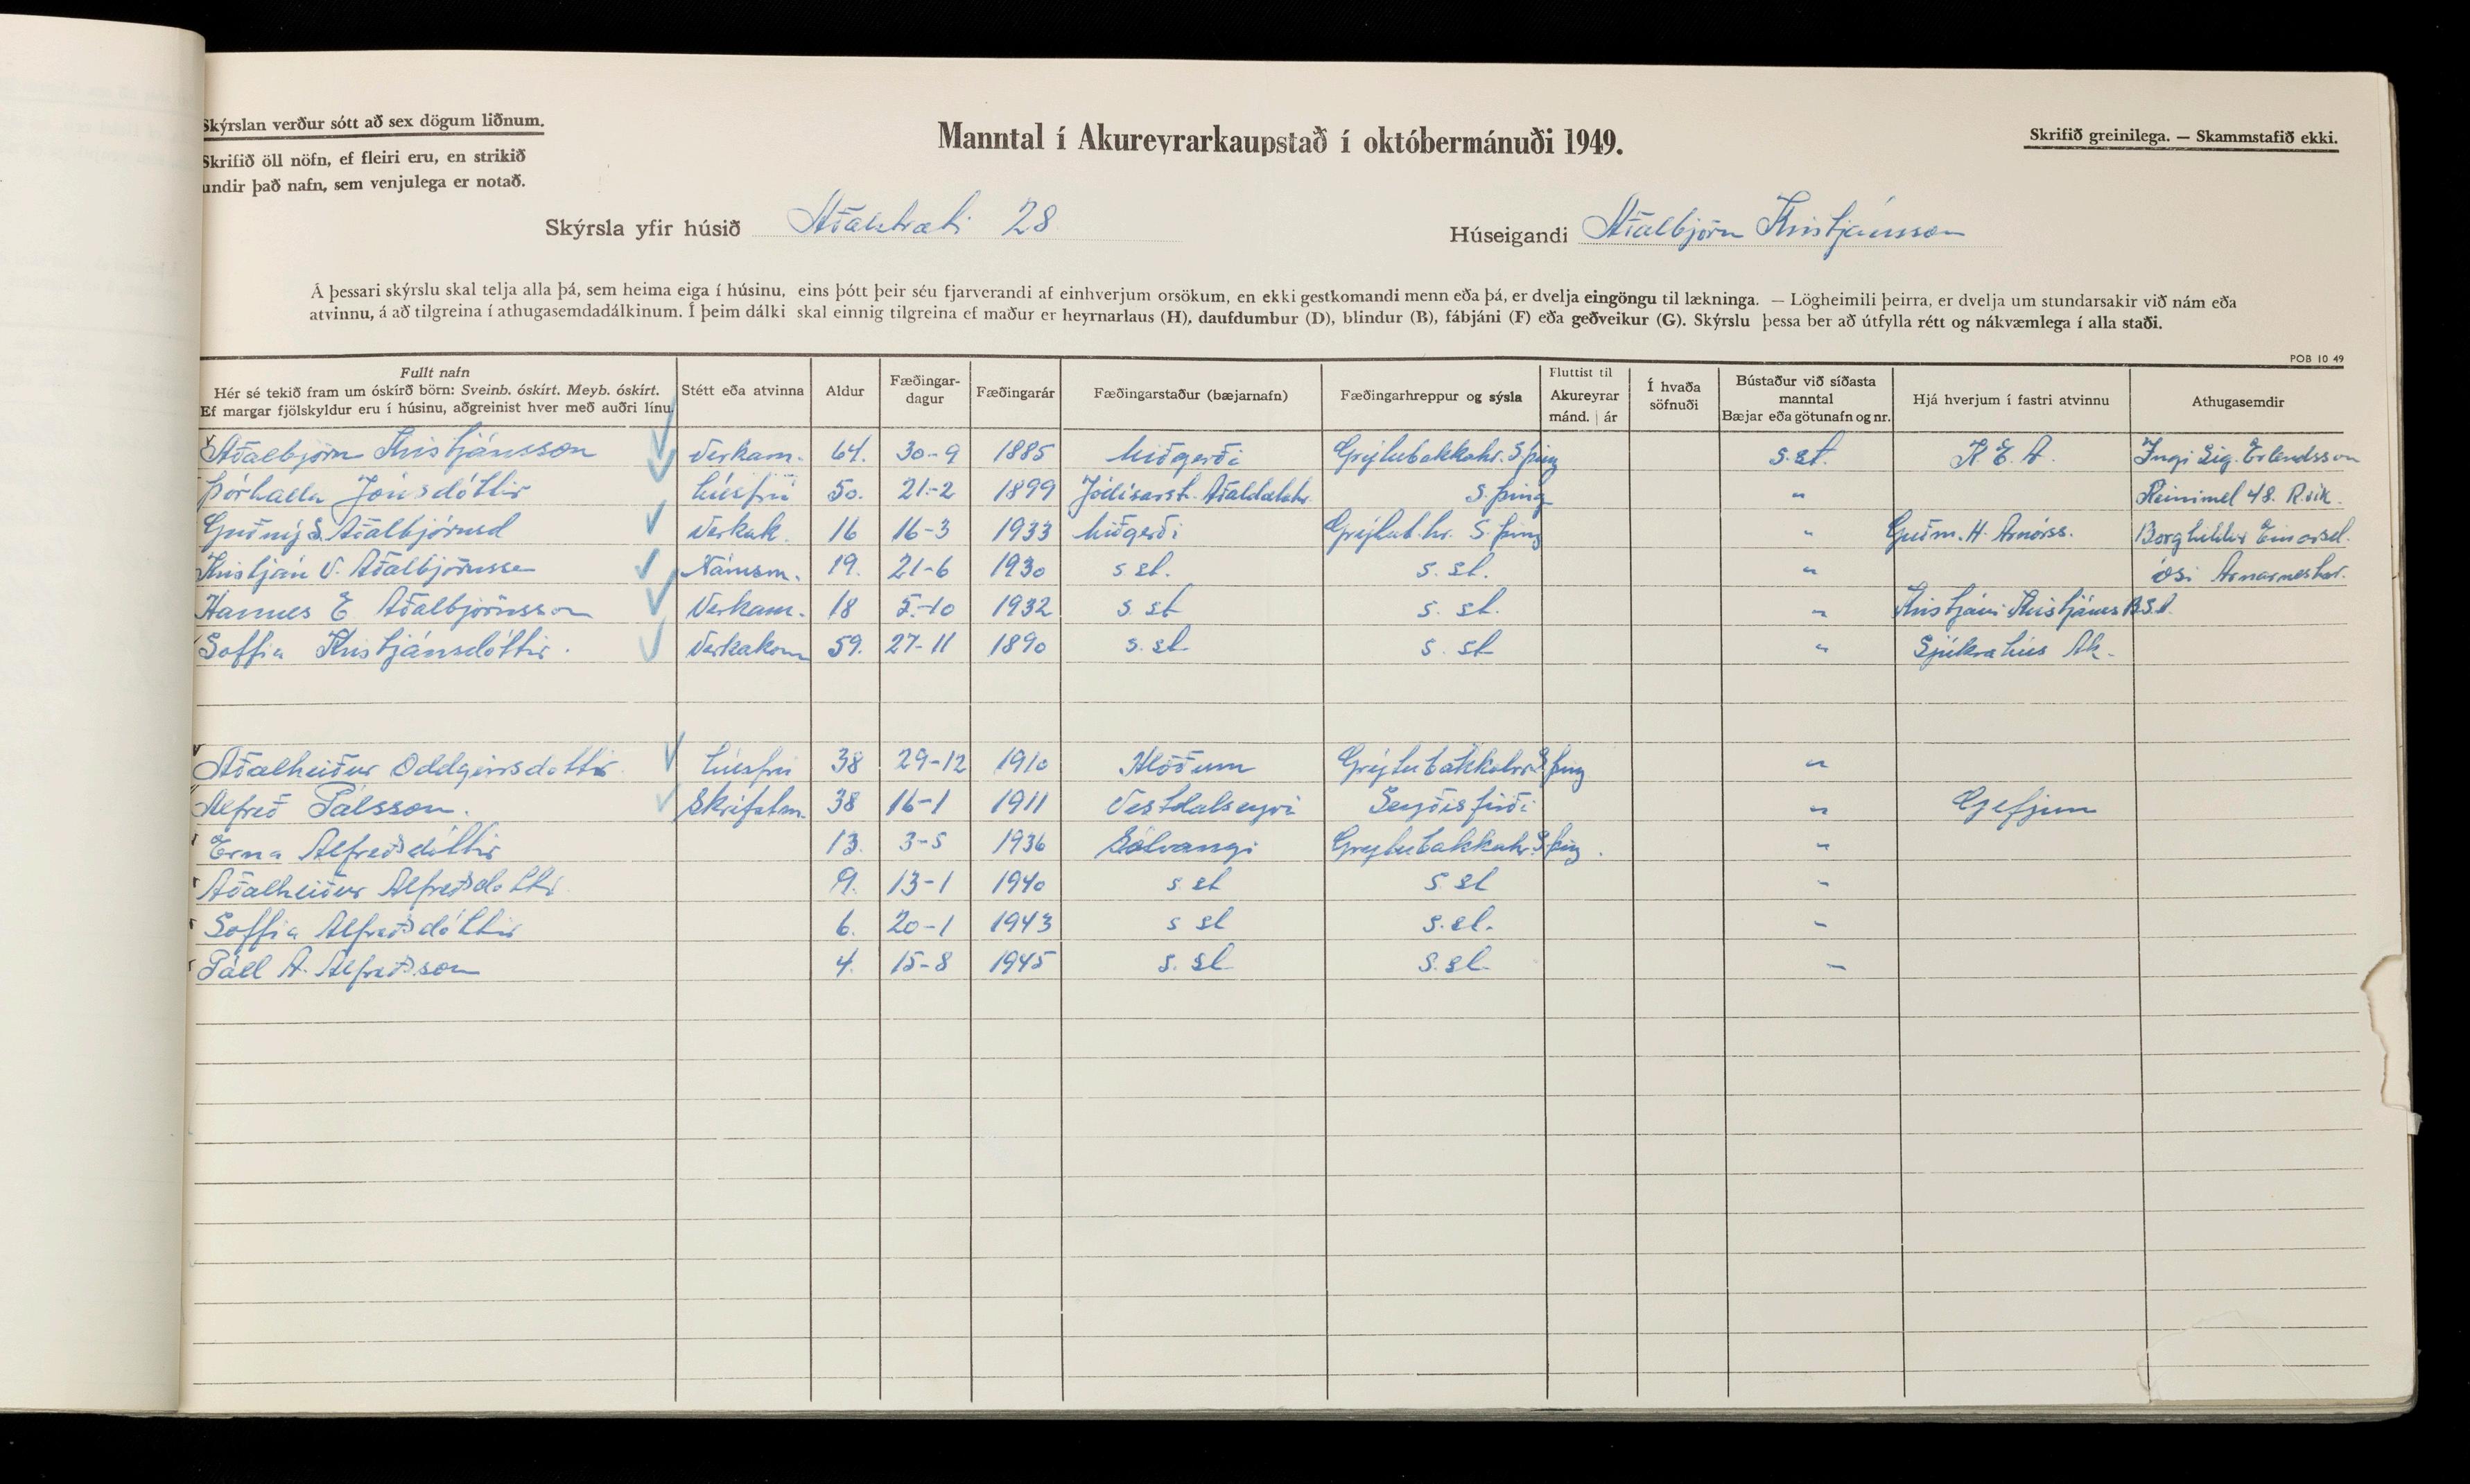 Skýrslan verður sótt að sex dögum liðnum.
Skrifið öll nöfn, ef fleiri eru, en strikið
undir það nafn, sem venjulega er notað.
Manntal í Akureyrarkaupstað í októbermánuði 1949.
Skrifið greinilega. — Skammstafið ekki.
Skýrsla yfir húsið Aðalstræti 28
Húseigandi Aðalbjörn Kristjánsson
Á þessari skýrslu skal telja alla þá, sem heima eiga í húsinu, eins þótt þeir séu fjarverandi af einhverjum orsökum, en ekki gestkomandi menn eða þá, er dvelja eingöngu til lækninga. — Lögheimili þeirra, er dvelja um stundarsakir við nám eða
atvinnu, á að tilgreina í athugasemdadálkinum. Í þeim dálki skal einnig tilgreina ef maður er heyrnarlaus (H), daufdumbur (D), blindur (B), fábjáni (F) eða geðveikur (G). Skýrslu þessa ber að útfylla rétt og nákvæmlega í alla staði.
POB 10 49
Fullt nafn
Hér sé tekið fram um óskírð börn: Sveinb. óskírt. Meyb. óskírt.
Ef margar fjölskyldur eru í húsinu, aðgreinist hver með auðri línu.
Stétt eða atvinna
Aldur
Fæðingar-
dagur
Fæðingarár
Fæðingarstaður (bæjarnafn)
Fæðingarhreppur og sýsla
Fluttist til
Akureyrar
mánd. | ár
Í hvaða
söfnuði
Bústaður við síðasta
manntal
Bæjar eða götunafn og nr.
Hjá hverjum í fastri atvinnu
Athugasemdir
Aðalbjörn Kristjánsson Verkam. 64. 30-9 1885 Miðgerði Grýtubakkahr. S þing s.st. K E A. Ingi Sig. Erlendsson
Þórhalla Jónsdóttir húsfrú 50. 21-2 1899 Jódísarst. Aðaldalshr. S. þing " Reinimel 48. R.vik.
Guðný S. Aðalbjörnsd Verkak. 16 16-3 1933 Miðgerði Grýtub.hr. S. þing " Guðm. H. Arnórss. Borghildur Einarsd.
Kristján V. Aðalbjörnsson Námsm. 19. 21-6 1930 s st. s. st. " Ósi Arnarneshr.
Hannes E Aðalbjörnsson Verkam. 18 5-10 1932 s. st s. st. " Kristjáni Kristjánss B.S.A.
Soffía Kristjánsdóttir. Verkakona 59. 27-11 1890 s. st. s. st " Sjúkrahús Ak.
Aðalheiður Oddgeirsdóttir húsfrú 38 29-12 1910 Hlöðum Grýtubakkahr. S þing "
Alfreð Pálsson. Skrifstm. 38 16-1 1911 Vestdalseyri Seyðisfirði " Gefjun
Erna Alfreðsdóttir 13. 3-5 1936 Sólvangi Grýtubakkahr. S þing. "
Aðalheiður Alfreðsdóttir 9. 13-1 1940 s. st s. st "
Soffía Alfreðsdóttir 6. 20-1 1943 s st s. st. "
Páll A. Alfreðsson 4. 15-8 1945 s. st. s. st. "